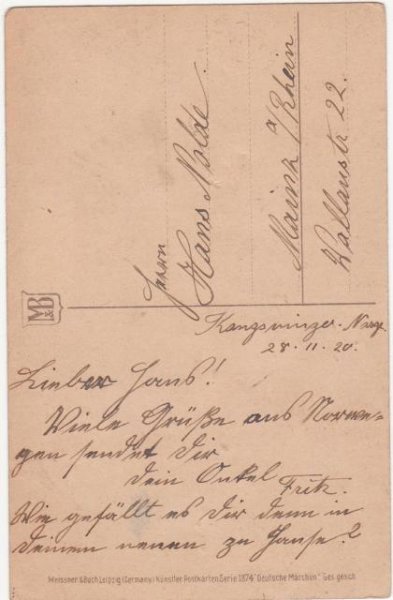 Herrn
Hans Nolde
Mainz a/Rhein
Wallaustr 22.
MB
&
Kongsvinger. Norge.
28.11.20.
Lieber Hans!
Viele Grüße aus Norwe-
gen sendet dir
dein Onkel
Fritz.
Wie gefällt es dir denn in
deinem neuen zu Hause?
Meissner & Buch Leipzig (Germany) Künstler Postkarten Serie 1874 "Deutsche Märchen" Ges. gesch